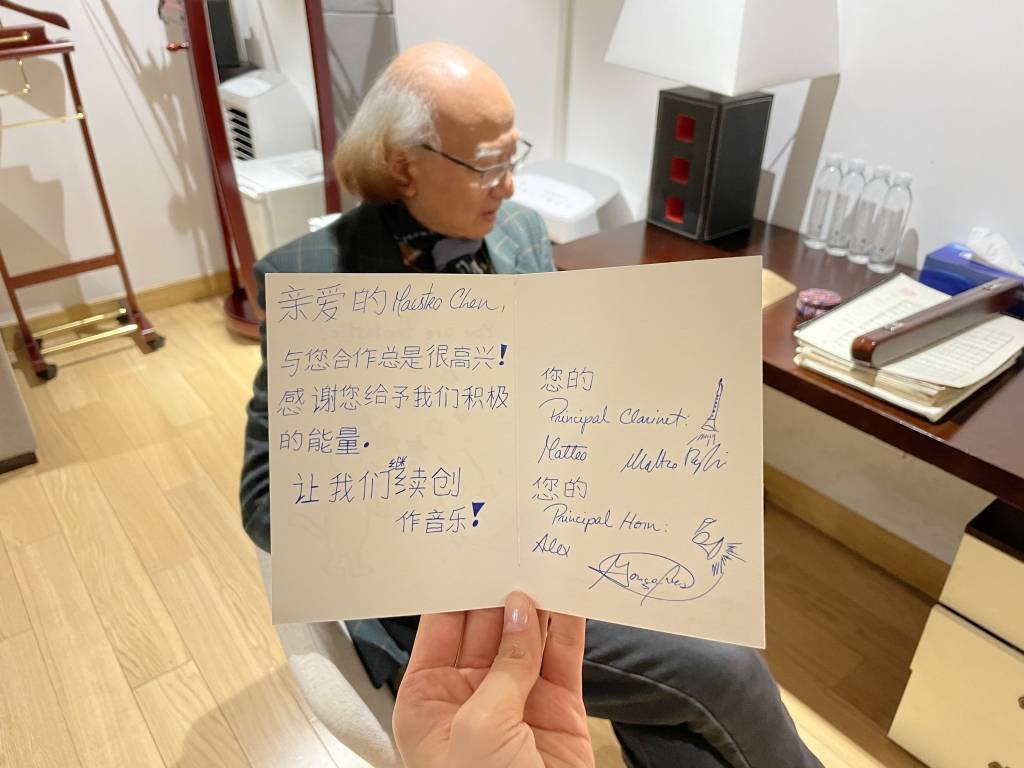 亲爱的 Maestro Chen,
与您合作总是很高兴!
感谢您给予我们积极
的能量.
让我们继续创
作音乐!
您的
Principal Clarinet:
Matteo
您的
Principal Horn:
Alex
Gonçalves